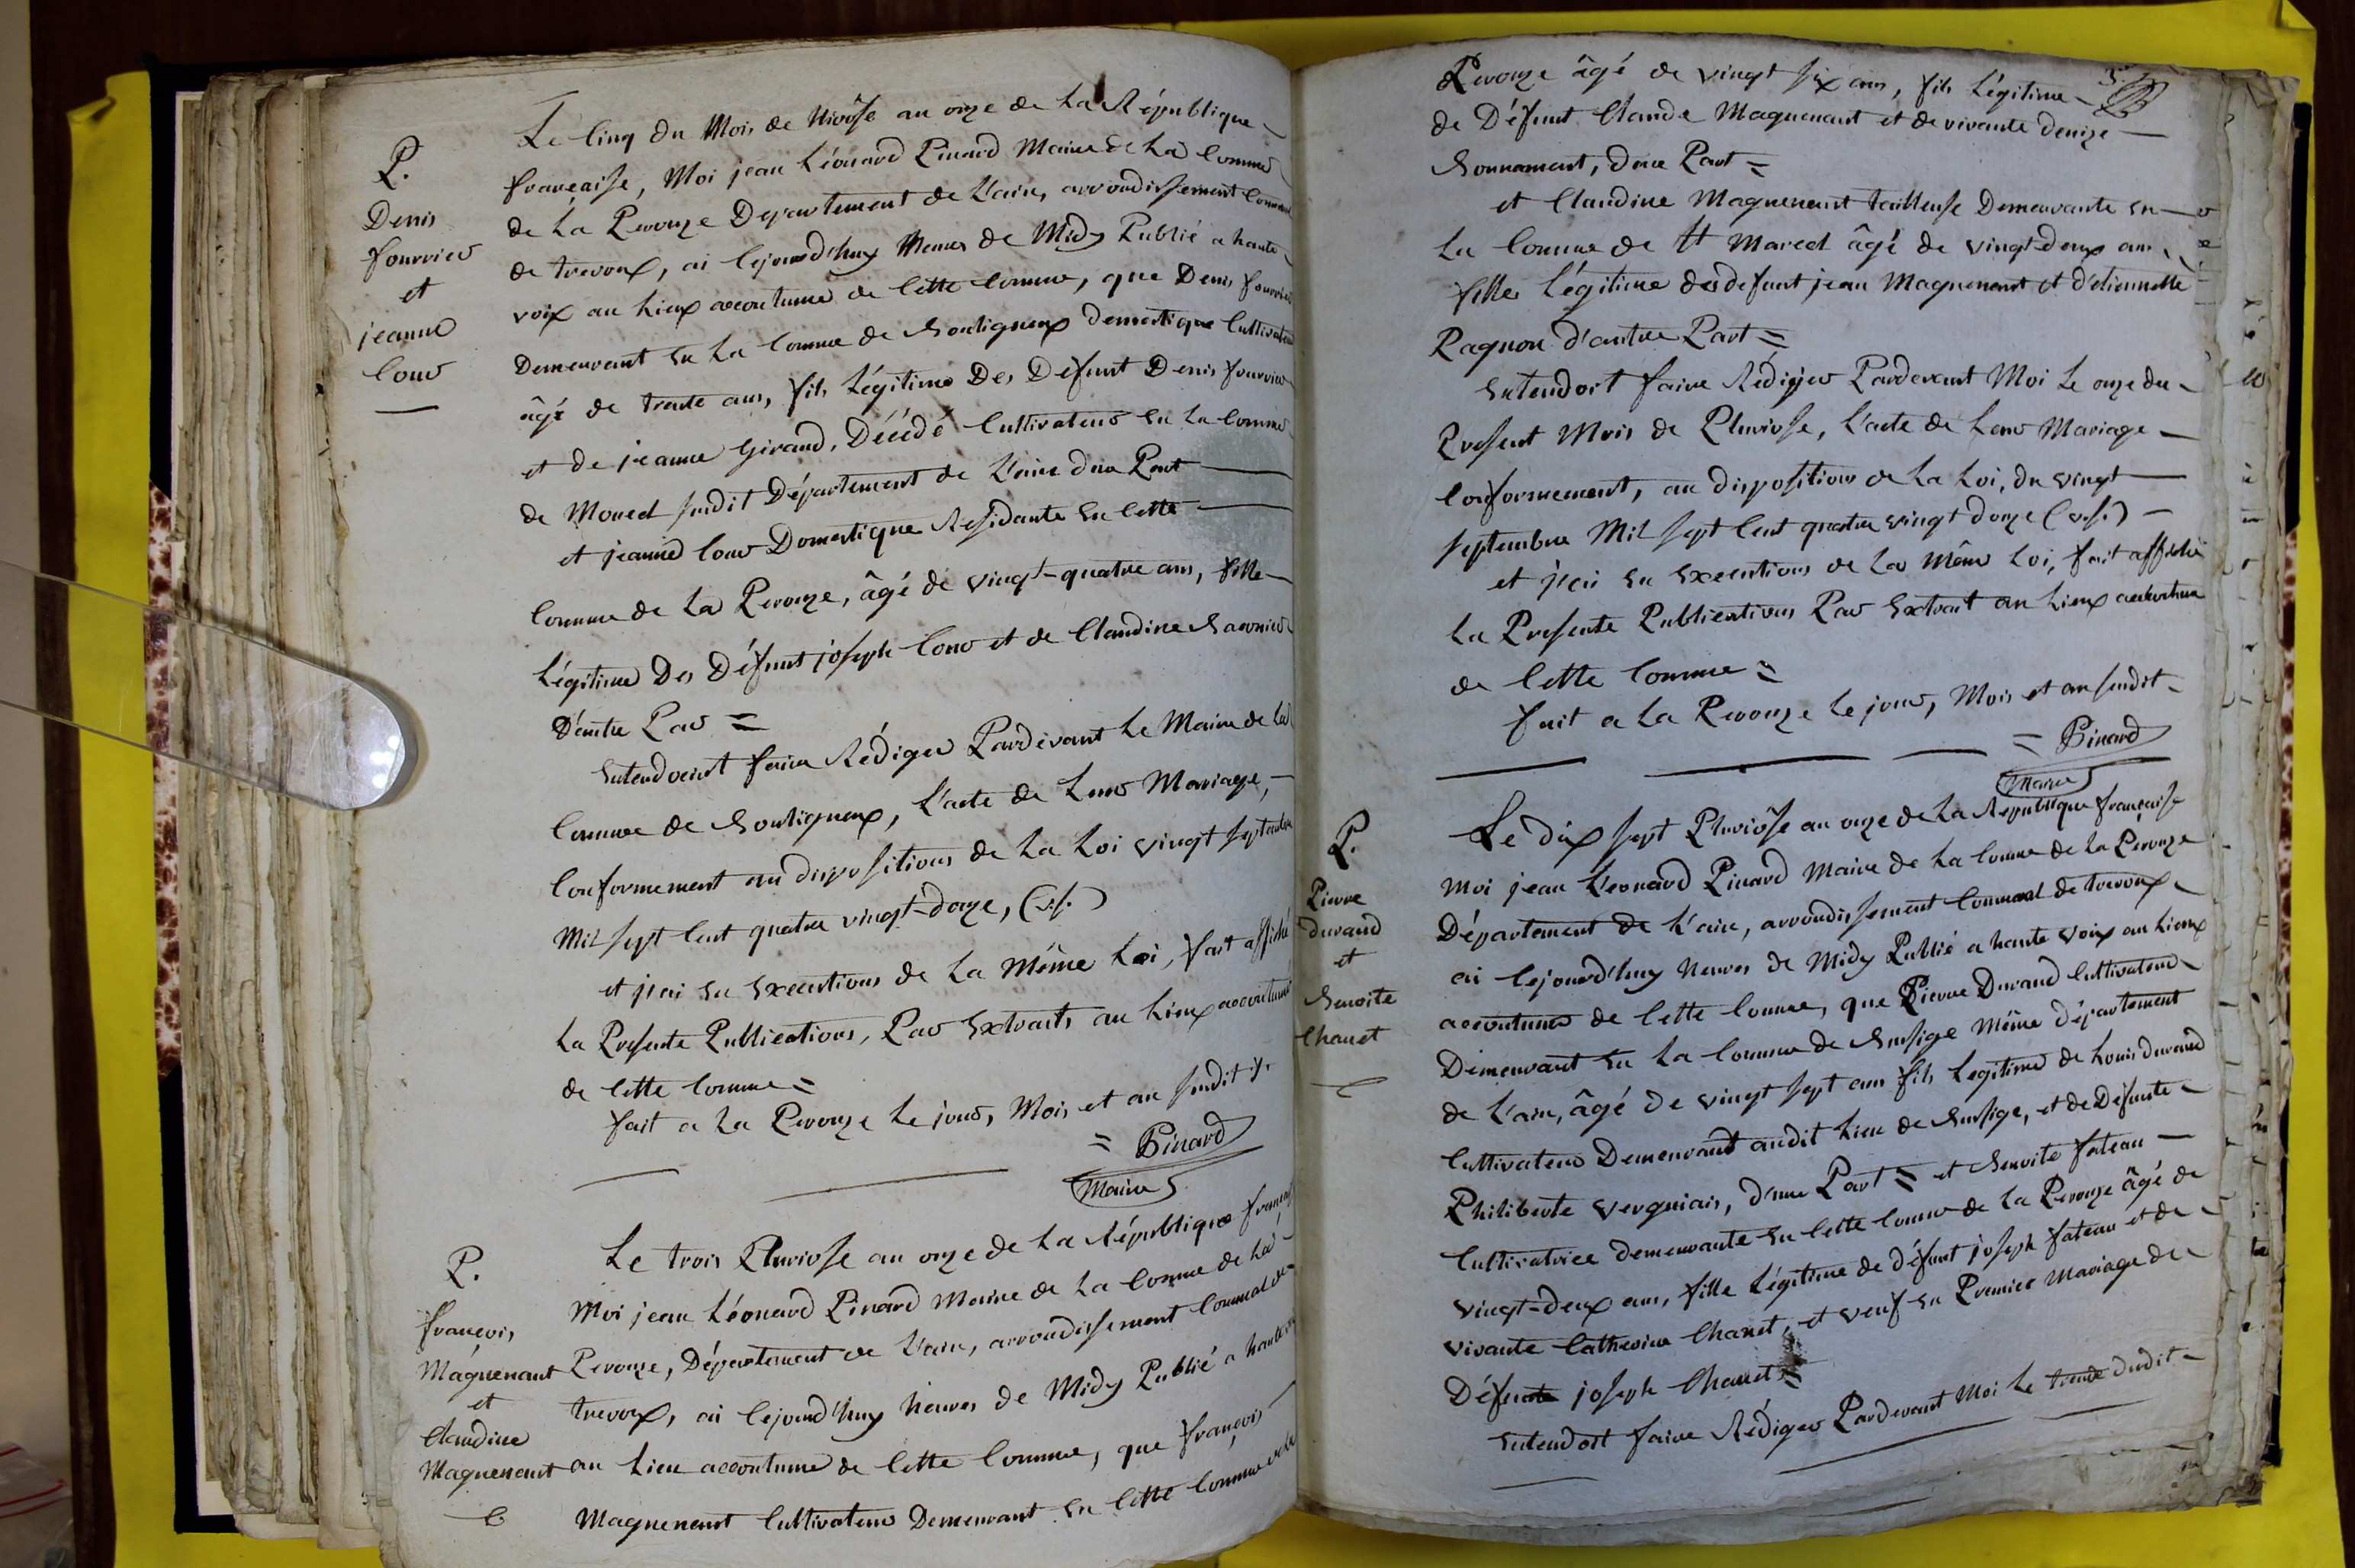 P.
Denis
fourrier
et
jeanne
Cour
Le Cinq du Mois de Nivôse an onze de La République
française, Moi jean Léonard Pinard Maire de La Comune
de La Perouze Département de L'ain, arrondissement Communal
de trevoux, ai Cejourd'huy heures de Midy Publié a haute
voix au Lieux accoutumé de Cette Comune, que Denis fourrier
Demeurant En La Comune de Bouligneux domestique Cultivateur
âgé de trente ans, fils Légitime Des Défunt Denis fourrier
et de jeanne Giraud, Décédé Cultivateur En La Comune
de Monect sudit Département de L'ain d'une Part
et jeanne Cour Domestique Residante En Cette
Comune de La Perouze, âgé de vingt-quatre ans, fille
Légitime Des Défunt joseph Cour et de Claudine
D'autre Par =
Entendoint faire Rédiger Pardevant Le Maire de La
Comune de Bouligneux, L'acte de Leur Mariage,
Conformement au dispositions de La Loi vingt septembre
Mil sept Cent quatre vingt-douze, (v.s.)
et j'ai En Executions de La Même Loi, fait affiché
La Presente Publications, Par Extraits au Lieux accoutumé
de Cette Comune =
fait a La Perouze Le jour, Mois et an sudit
= Pinard
Maire
P.
françois
Magnenant
et
Claudine
Magnenant
Le trois Pluviose an onze de La République française
Moi jean Léonard Pinard Maire de La Comune de La
Perouze, Département de L'ain, arrondissement Communal de
trevoux, ai Cejourd'huy heures de Midy Publié a haute voix
au Lieu accoutumé de Cette Comune, que françois
Magnenant Cultivateur Demeurant En Cette Comune de La
Perouze âgé de vingt six ans, fils Légitime
de Défunt Claude Magnenant et de vivante denize
Bonnamant, d'une Part =
et Claudine Magnenant tailleuse Demeurante En
La Comune de St Marcel âgé de vingt-deux ans,
fille Légitime des defunt jean Magnenant et d'etiennette
Pagnon d'autre Part =
Entendoit faire Rédiger Pardevant Moi Le onze du
Present Mois de Pluviose, L'acte de Leur Mariage
Conformement, au dispositions de La Loi, du vingt
septembre Mil sept Cent quatre vingt douze (v.s.)
et j'ai En Executions de La Même Loi, fait affiché
La Presente Publications Par Extrait au Lieux accoutumé
de Cette Comune =
fait a La Perouze Le jour, Mois et an sudit
= Pinard
Maire
P.
Pierre
durand
et
Benoite
Chanet
Le dix sept Pluviôse an onze de La Republique française
Moi jean Léonard Pinard Maire de La Comune de La Perouze
Département de L'ain, arrondissement Communal de trevoux
ai Cejourd'huy heures de Midy Publié a haute voix au Lieux
accoutumé de Cette Comune, que Pierre Durand Cultivateur
Demeurant En La Comune de Même département
de L'ain, âgé de vingt sept ans fils Legitime de Louis durand
Cultivateur Demeurant audit Lieu de et de Défunte
Philiberte Vergniais, d'une Part = et Benoite fateau
Cultivatrice demeurante En Cette Comune de La Perouze âgé de
vingt-deux ans, fille Légitime de défunt joseph fateau et de
vivante Catherine Chanet, et veuf En Premier Mariage de
Défunte joseph Chanet =
Entendoit faire Rédiger Pardevant Moi Le trente dudit